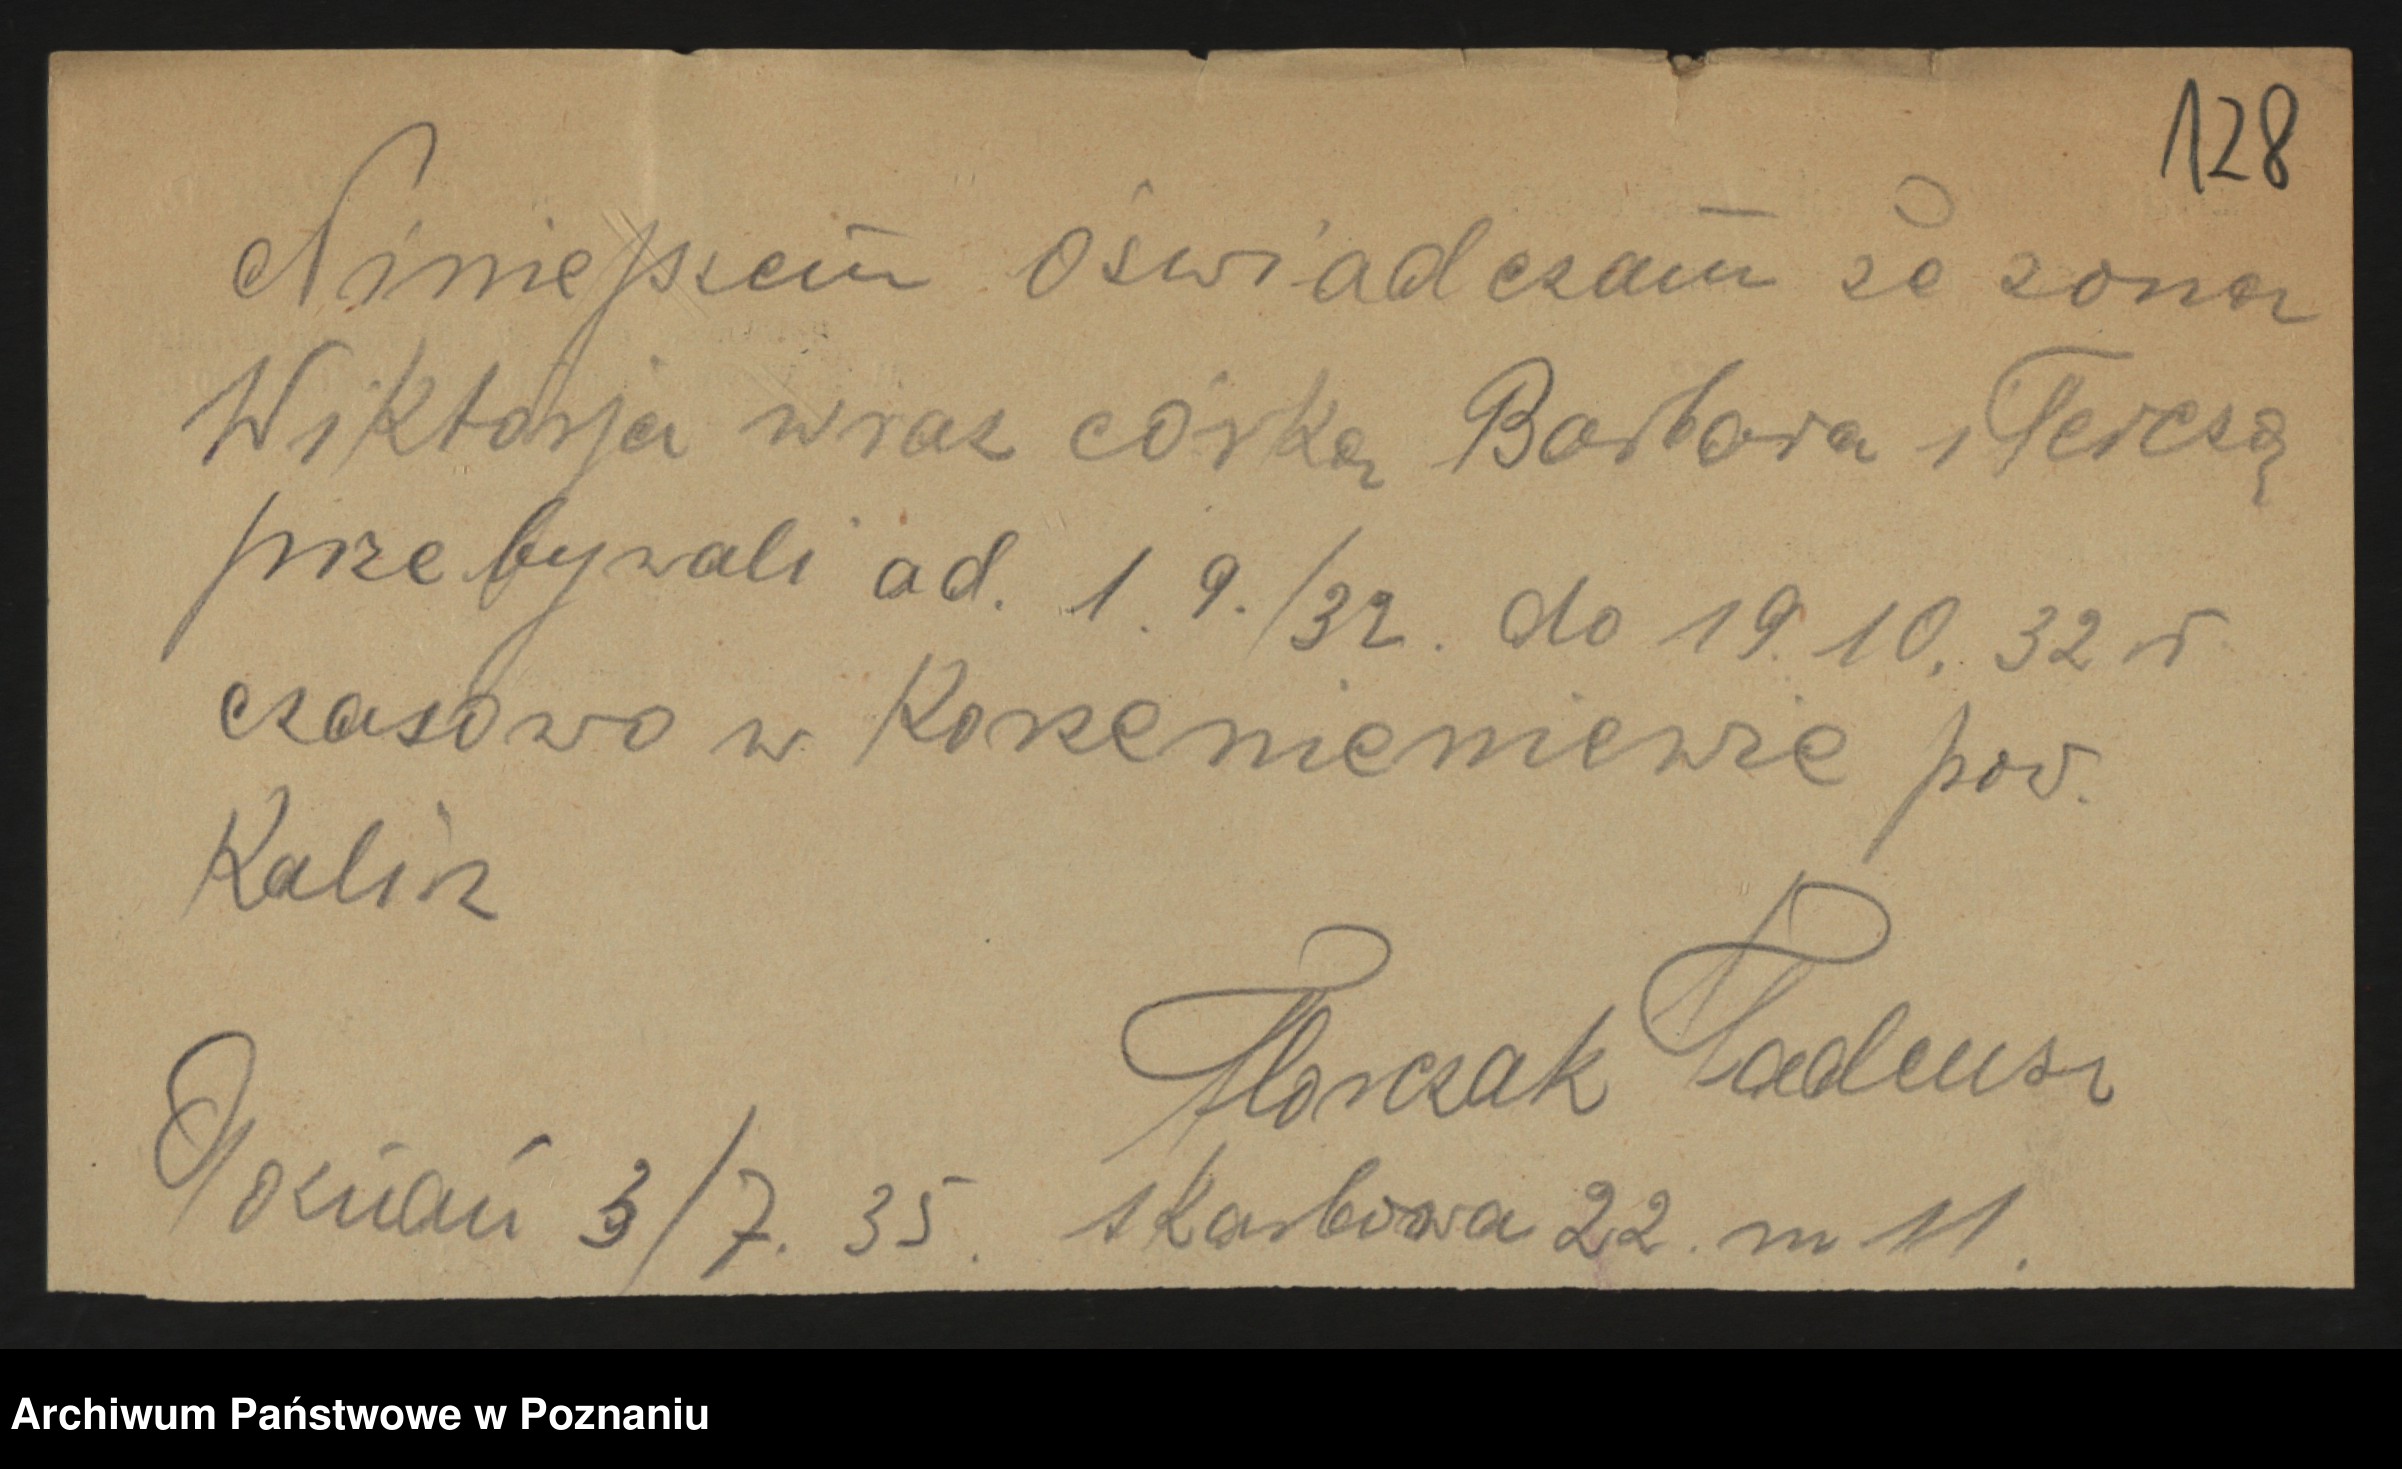 128
Niniejszem oświadczam że żona
Wiktorja wraz córką Barbara i Teresą
przebywali od. 1. 9./32. do 19. 10. 32 r
czasowo w Korzenieniewie pow.
Kalisz
Florczak Tadeusz
Poznań 3/7. 35. Skarbowa 22. m 11.
Archiwum Państwowe w Poznaniu